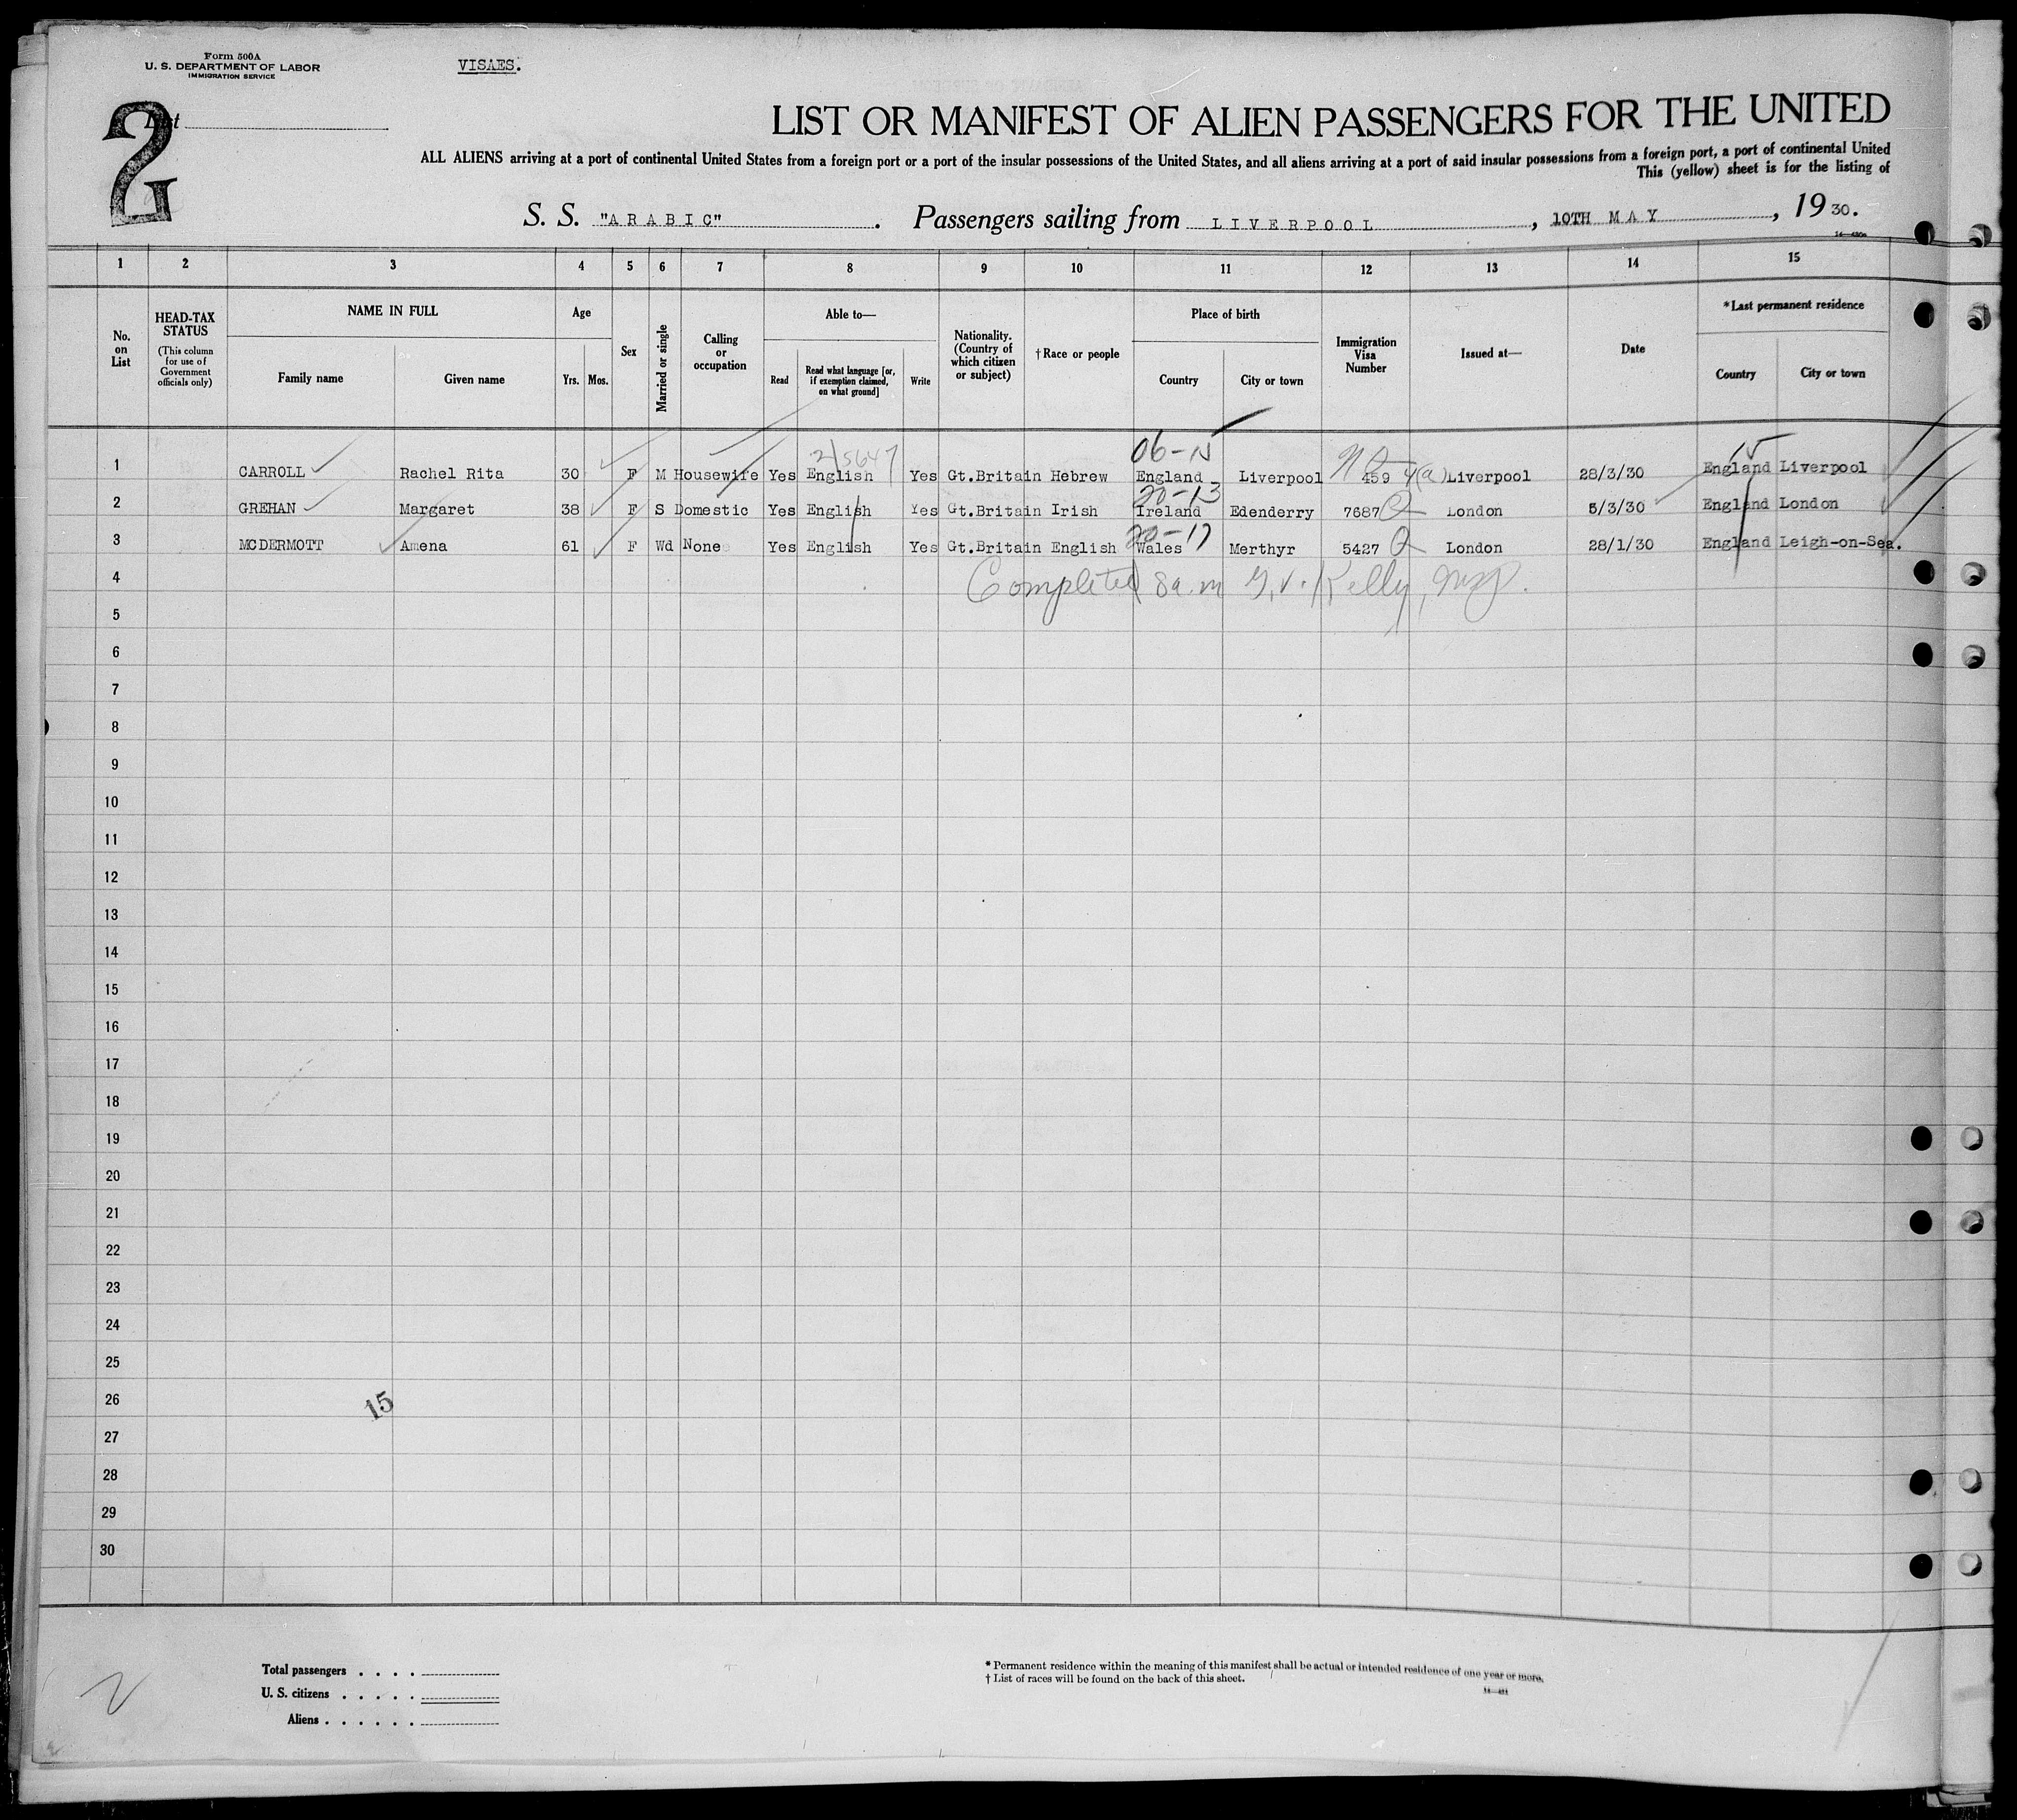 Form 500A
U. S. DEPARTMENT OF LABOR
IMMIGRATION SERVICE
VISAES.
2
List
LIST OR MANIFEST OF ALIEN PASSENGERS FOR THE UNITED
ALL ALIENS arriving at a port of continental United States from a foreign port or a port of the insular possessions of the United States, and all aliens arriving at a port of said insular possessions from a foreign port, a port of continental United
This (yellow) sheet is for the listing of
S. S. "ARABIC". Passengers sailing from LIVERPOOL, 10TH MAY, 1930.
1 2 3 4 5 6 7 8 9 10 11 12 13 14 15
No. on List
HEAD-TAX STATUS (This column for use of Government officials only)
NAME IN FULL
Family name Given name
Age
Yrs. Mos.
Sex
Married or single
Calling or occupation
Able to—
Read
Read what language [or, if exemption claimed, on what ground]
Write
Nationality. (Country of which citizen or subject)
†Race or people
Place of birth
Country City or town
Immigration Visa Number
Issued at—
Date
*Last permanent residence
Country City or town
06-15
1 CARROLL Rachel Rita 30 F M Housewife Yes English Yes Gt.Britain Hebrew England Liverpool 459 4(a) Liverpool 28/3/30 England Liverpool
20-13
2 GREHAN Margaret 38 F S Domestic Yes English Yes Gt.Britain Irish Ireland Edenderry 7687 London 5/3/30 England London
20-17
3 MCDERMOTT Amena 61 F Wd None Yes English Yes Gt.Britain English Wales Merthyr 5427 London 28/1/30 England Leigh-on-Sea.
4
Completed 8a.m G.V. Kelly, Insp.
5
6
7
8
9
10
11
12
13
14
15
16
17
18
19
20
21
22
23
24
25
26
15
27
28
29
30
Total passengers . . . .
U. S. citizens . . . . .
Aliens . . . . . .
2
* Permanent residence within the meaning of this manifest shall be actual or intended residence of one year or more.
† List of races will be found on the back of this sheet.